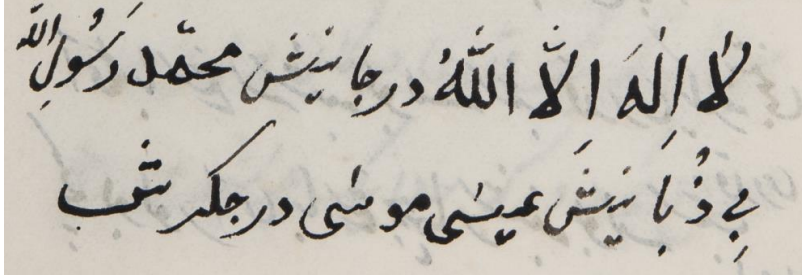 لَا اِلٰهَ اِلَّا اللّٰهُ در جانینش محمّد رَسُولِ اللّٰه
بِی ذُبَانِینشَ عیسٰی موسٰی در جکرش